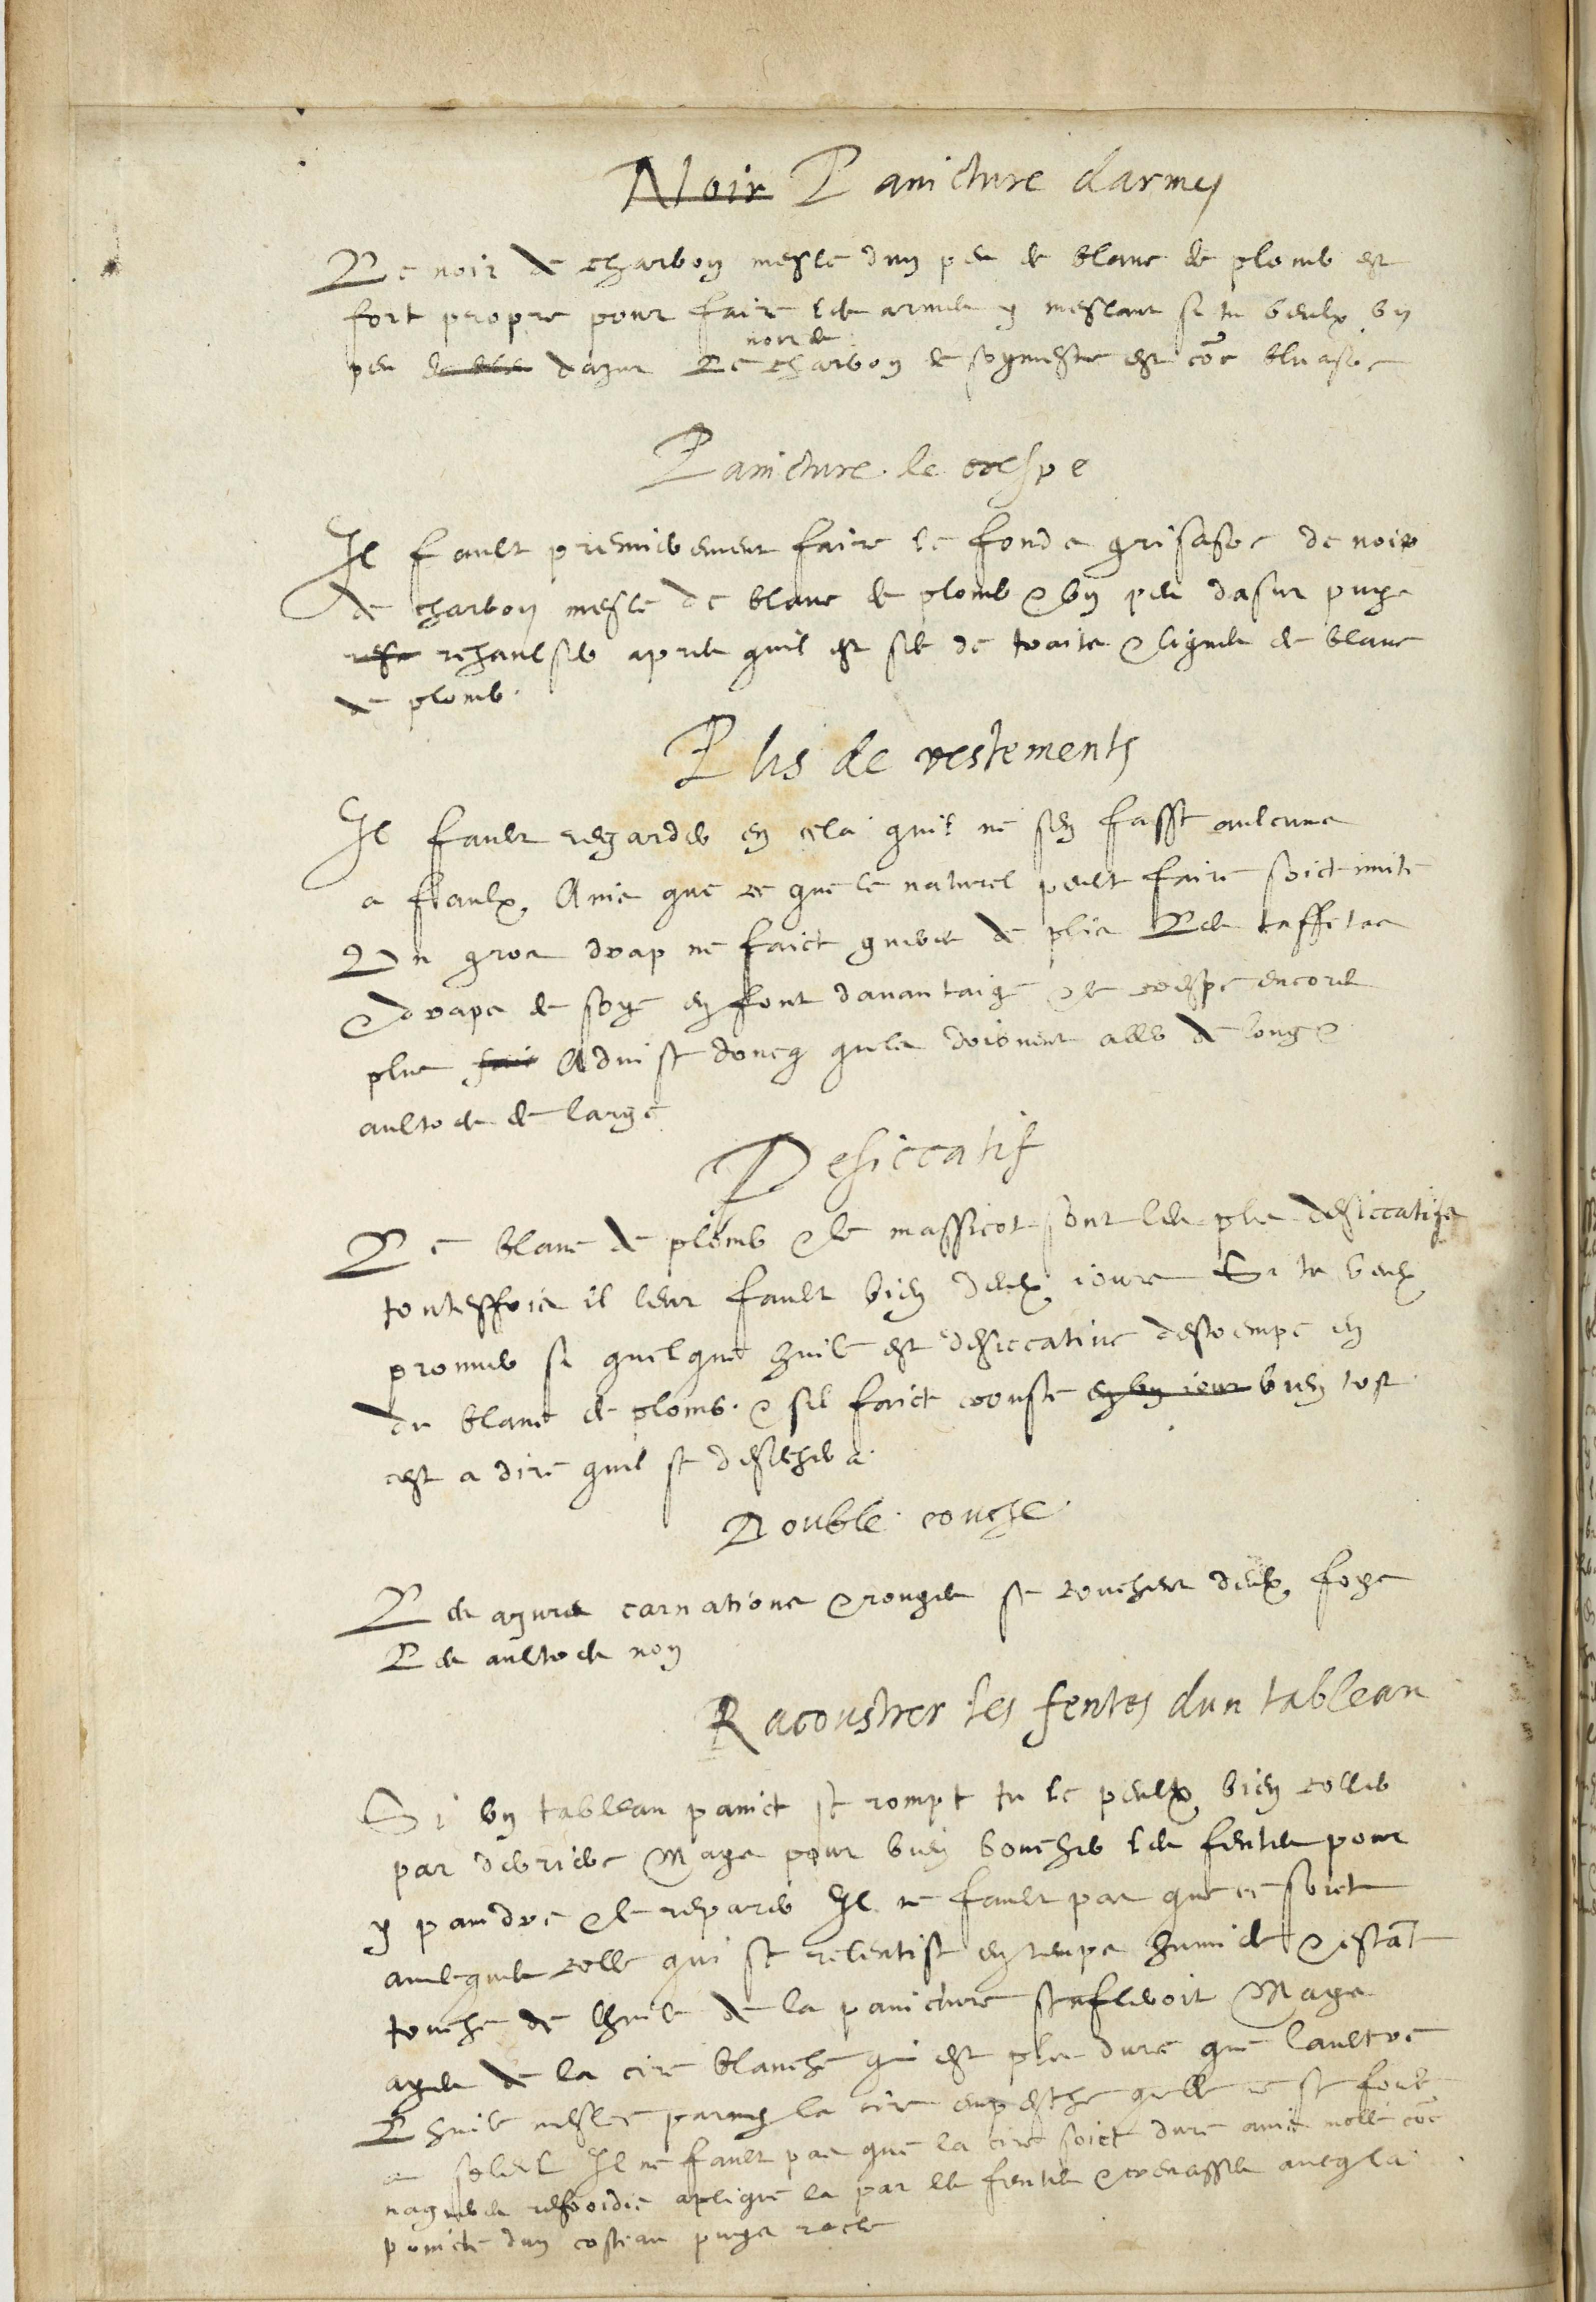 Noir Paincture darmes
Le noir de charbon mesle dun peu de blanc de plomb est
fort propre pour faire les armes y meslant si tu veulx un
noir de
peu de bleu dazur Le charbon de soymesme est coe bluastre
Paincture le crespe
Il fault premierement faire le fonds grisastre de noir
de charbon mesle de blanc de plomb & un peu dasur puys
reh rehaulser apres quil est sec de traits & lignes de blanc
de plomb
Plis de vestements
Il fault regarder en cela quil ne sen fasse aulcuns
a faulx Ains que ce que le naturel peult faire soict imite
Un gros drap ne faict gueres de plis Les taffetas
& draps de soye en font davantaige & le crespe encores
plus fai Advise doncq quils doibvent aller de long &
aultres de large
Desiccatif
Le blanc de plomb & le massicot sont les plus desiccatifs
toutesfois il leur fault bien deulx jours Si tu veulx
prouver si quelque huile est desiccative destrempe en
du blanc de plomb & sil faict crouste en un jour bien tost
cest a dire quil se deseichera
Double couche
Les azures carnations & rouges se couchent deulx foys
Les aultres non
Racoustrer les fentes dun tableau
Si un tableau painct se rompt tu le peulx bien coller
par derriere Mays pour bien boucher les fentes pour
y paindre & le reparer Il ne fault pas que ce soict
avecques colle qui se relentist en temps humide & estat
touche de lhuile de la paincture senfleroit Mays
ayes de la cire blanche qui est plus dure que laultre
Lhuile meslee parmy la cire empesche quelle ne se fonde
au soleil Il ne fault pas que la cire soict dure ains molle coe
nageres refroidie aplique la par les fentes & crevasses avecq la
poincte dun costeau puys racle